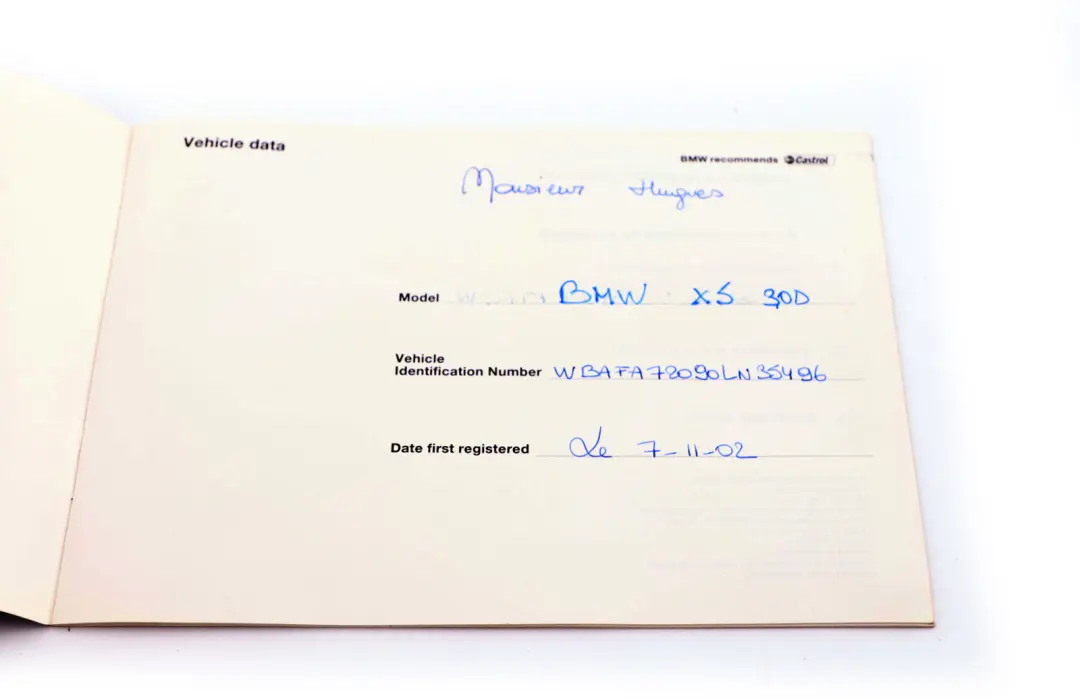 Vehicle data
BMW recommends Castrol
Monsieur Hugues
Model BMW X5 30D
Vehicle
Identification Number WBAFA72090LN35496
Date first registered Le 7-11-02